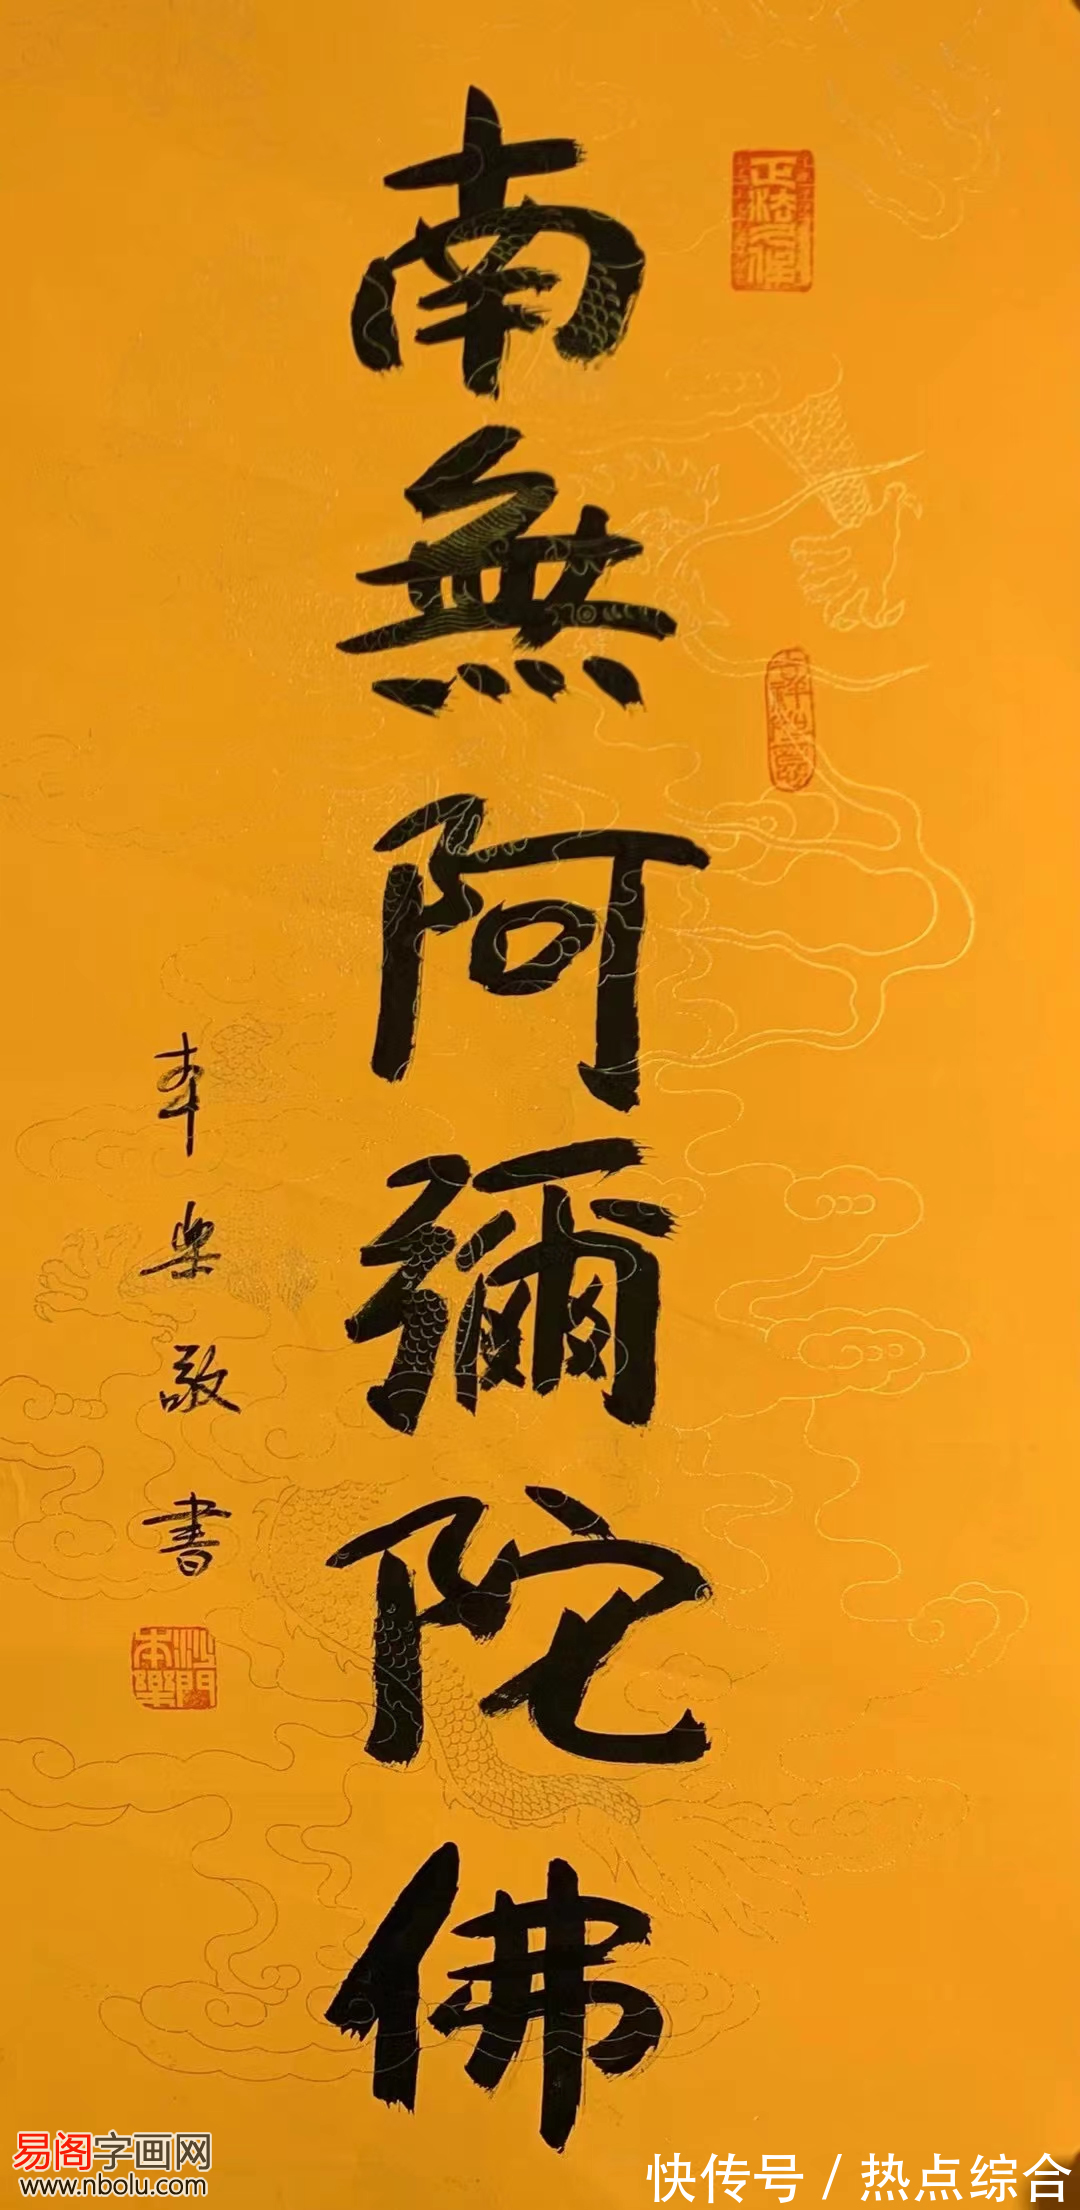 南無阿彌陀佛
本樂敬書
正法久住
沙門本樂
易阁字画网
www.nbolu.com
快传号 / 热点综合